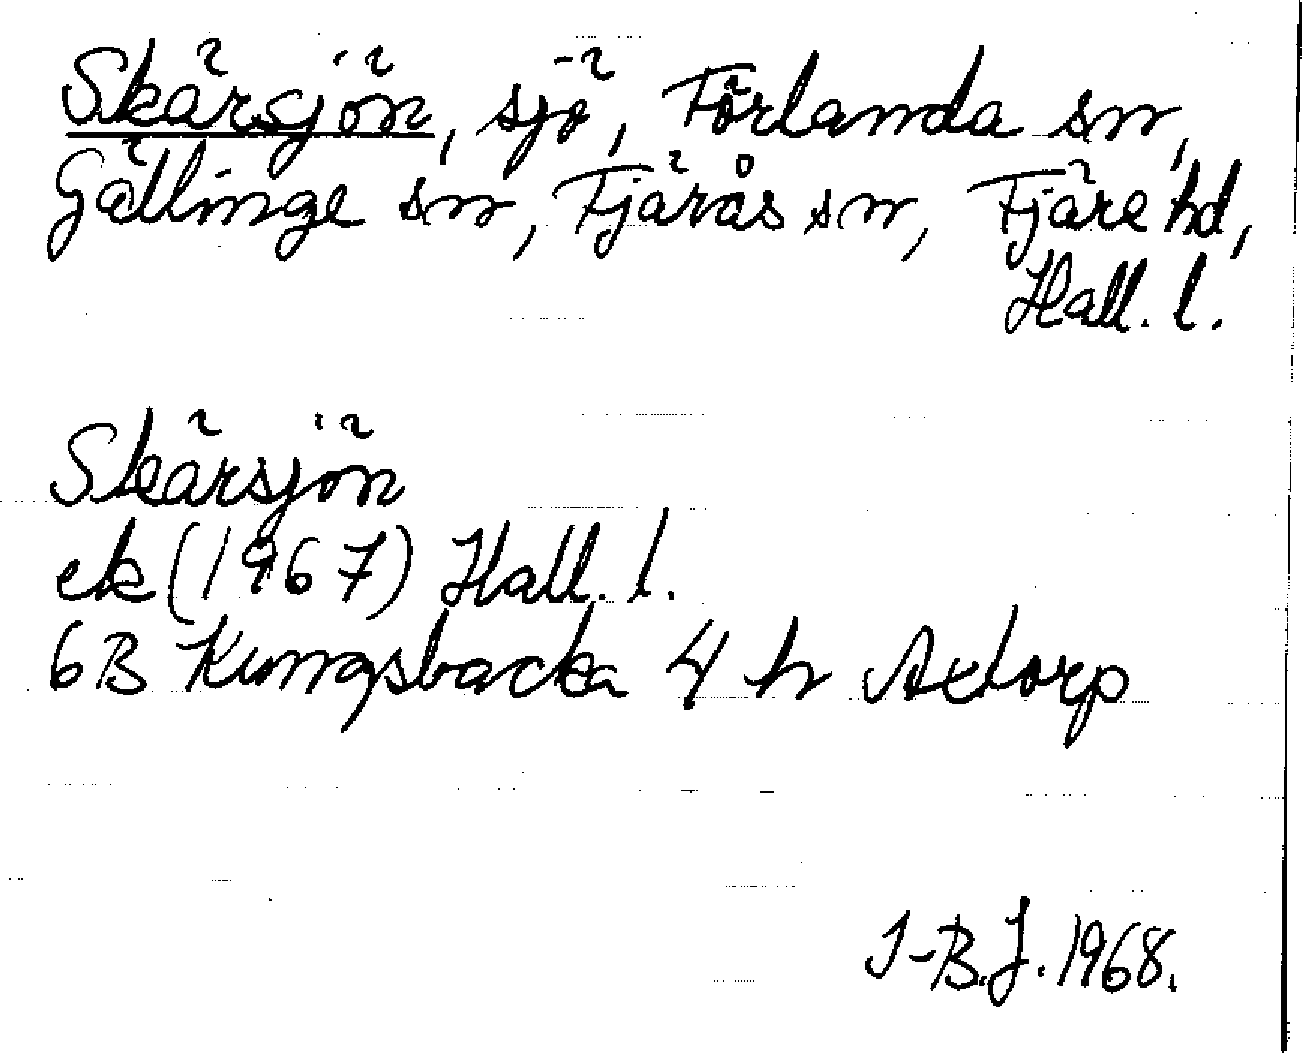 Skärsjön, sjö, Förlanda sn,
Gällinge sn, Fjärås sn, Fjäre hd,
Hall. l.
Skärsjön
ek (1967) Hall. l.
6B Kungsbacka 4 h Axtorp
I-B.J. 1968.